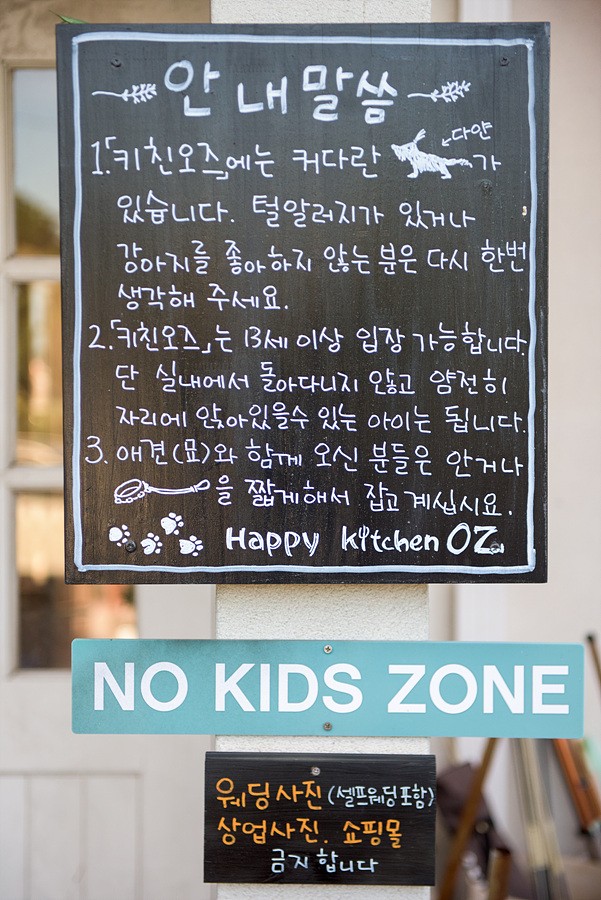 안내말씀
1.「키친오즈」에는 커다란 ←다얀 가
있습니다. 털알러지가 있거나
강아지를 좋아하지 않는 분은 다시 한번
생각해 주세요.
2.「키친오즈」는 13세 이상 입장 가능합니다.
단 실내에서 돌아다니지 않고 얌전히
자리에 앉아있을수 있는 아이는 됩니다.
3. 애견(묘)와 함께 오신 분들은 안거나
을 짧게해서 잡고 계십시요.
Happy kitchen OZ
NO KIDS ZONE
웨딩사진(셀프웨딩포함)
상업사진. 쇼핑몰
금지합니다